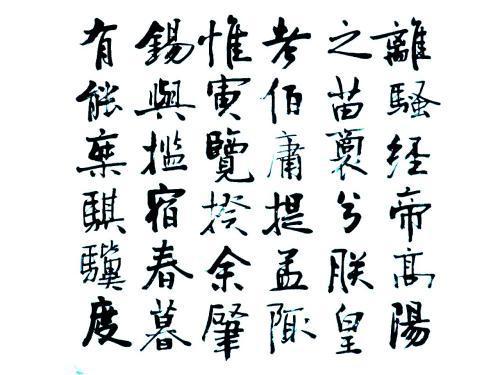 離騷経帝髙陽
之苗裔兮朕皇
考伯庸提孟陬
惟寅覽揆余肇
錫與攬宿春暮
有能棄騏驥度